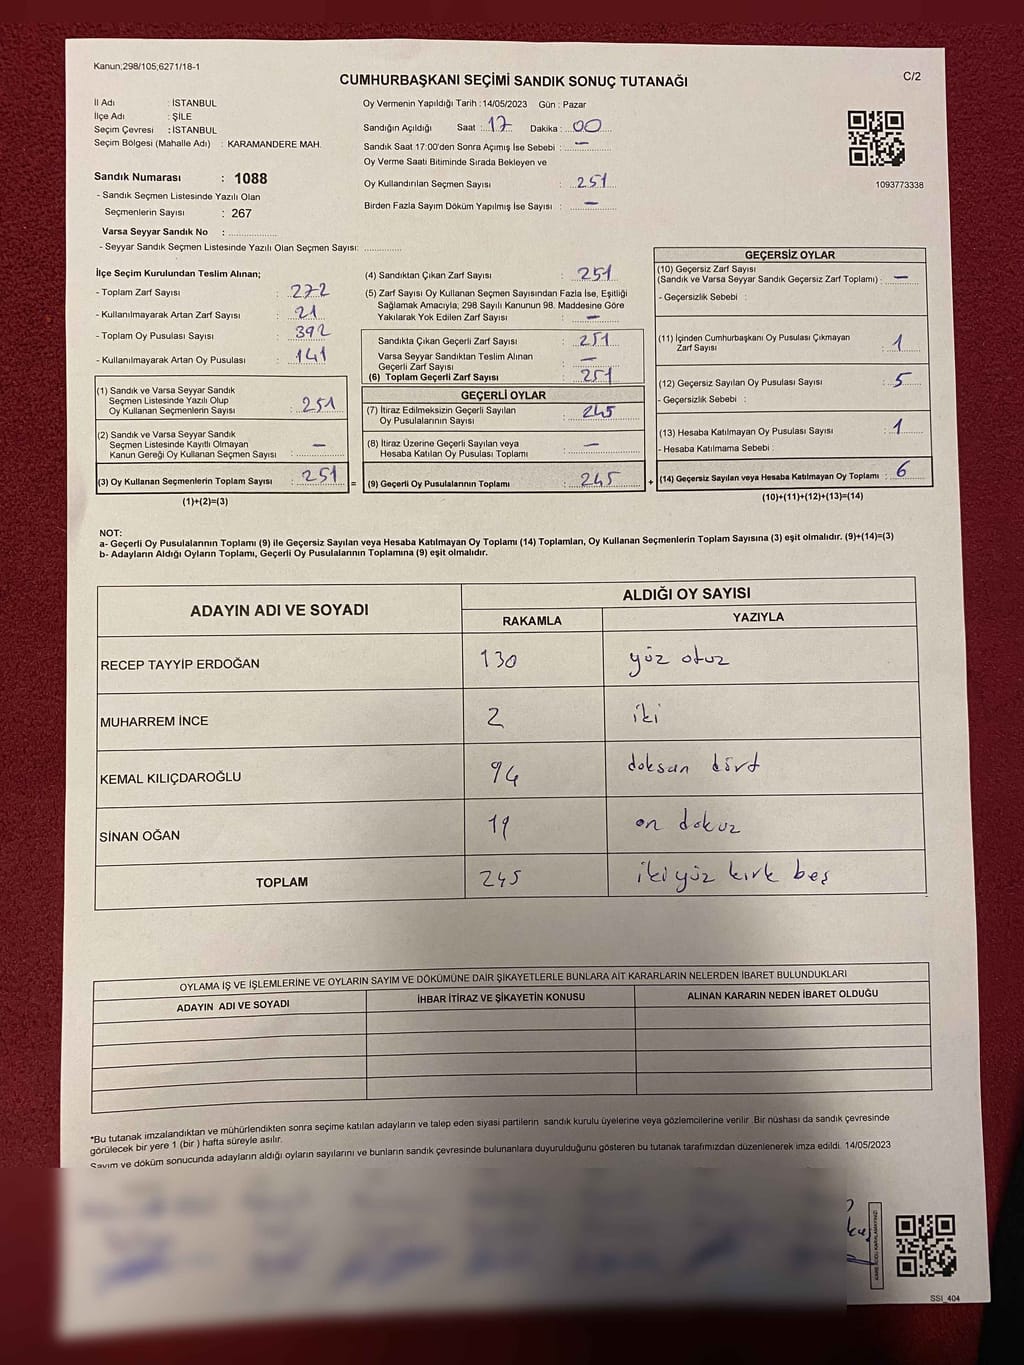 Kanun;298/105,6271/18-1
CUMHURBAŞKANI SEÇİMİ SANDIK SONUÇ TUTANAĞI
C/2
İl Adı : İSTANBUL
İlçe Adı : ŞİLE
Seçim Çevresi : İSTANBUL
Seçim Bölgesi (Mahalle Adı) : KARAMANDERE MAH.
Oy Vermenin Yapıldığı Tarih : 14/05/2023 Gün : Pazar
Sandığın Açıldığı Saat : 17 Dakika : 00
Sandık Saat 17:00'den Sonra Açımış İse Sebebi : —
Oy Verme Saati Bitiminde Sırada Bekleyen ve
Oy Kullandırılan Seçmen Sayısı : 251
Birden Fazla Sayım Döküm Yapılmış İse Sayısı : —
1093773338
Sandık Numarası : 1088
- Sandık Seçmen Listesinde Yazılı Olan
Seçmenlerin Sayısı : 267
Varsa Seyyar Sandık No :
- Seyyar Sandık Seçmen Listesinde Yazılı Olan Seçmen Sayısı:
İlçe Seçim Kurulundan Teslim Alınan;
- Toplam Zarf Sayısı : 272
- Kullanılmayarak Artan Zarf Sayısı : 21
- Toplam Oy Pusulası Sayısı : 392
- Kullanılmayarak Artan Oy Pusulası : 141
(1) Sandık ve Varsa Seyyar Sandık
Seçmen Listesinde Yazılı Olup
Oy Kullanan Seçmenlerin Sayısı : 251
(2) Sandık ve Varsa Seyyar Sandık
Seçmen Listesinde Kayıtlı Olmayan
Kanun Gereği Oy Kullanan Seçmen Sayısı : —
(3) Oy Kullanan Seçmenlerin Toplam Sayısı : 251
(1)+(2)=(3)
(4) Sandıktan Çıkan Zarf Sayısı : 251
(5) Zarf Sayısı Oy Kullanan Seçmen Sayısından Fazla İse, Eşitliği
Sağlamak Amacıyla; 298 Sayılı Kanunun 98. Maddesine Göre
Yakılarak Yok Edilen Zarf Sayısı : —
Sandıkta Çıkan Geçerli Zarf Sayısı : 251
Varsa Seyyar Sandıktan Teslim Alınan
Geçerli Zarf Sayısı : —
(6) Toplam Geçerli Zarf Sayısı : 251
GEÇERLİ OYLAR
(7) İtiraz Edilmeksizin Geçerli Sayılan
Oy Pusulalarının Sayısı : 245
(8) İtiraz Üzerine Geçerli Sayılan veya
Hesaba Katılan Oy Pusulası Toplamı : —
= (9) Geçerli Oy Pusulalarının Toplamı : 245 +
GEÇERSİZ OYLAR
(10) Geçersiz Zarf Sayısı
(Sandık ve Varsa Seyyar Sandık Geçersiz Zarf Toplamı) : —
- Geçersizlik Sebebi :
(11) İçinden Cumhurbaşkanı Oy Pusulası Çıkmayan
Zarf Sayısı : 1
(12) Geçersiz Sayılan Oy Pusulası Sayısı : 5
- Geçersizlik Sebebi :
(13) Hesaba Katılmayan Oy Pusulası Sayısı : 1
- Hesaba Katılmama Sebebi :
(14) Geçersiz Sayılan veya Hesaba Katılmayan Oy Toplamı : 6
(10)+(11)+(12)+(13)=(14)
NOT:
a- Geçerli Oy Pusulalarının Toplamı (9) ile Geçersiz Sayılan veya Hesaba Katılmayan Oy Toplamı (14) Toplamları, Oy Kullanan Seçmenlerin Toplam Sayısına (3) eşit olmalıdır. (9)+(14)=(3)
b- Adayların Aldığı Oyların Toplamı, Geçerli Oy Pusulalarının Toplamına (9) eşit olmalıdır.
ADAYIN ADI VE SOYADI
ALDIĞI OY SAYISI
RAKAMLA YAZIYLA
RECEP TAYYİP ERDOĞAN 130 yüz otuz
MUHARREM İNCE 2 iki
KEMAL KILIÇDAROĞLU 94 doksan dört
SİNAN OĞAN 19 on dokuz
TOPLAM 245 ikiyüz kırk beş
OYLAMA İŞ VE İŞLEMLERİNE VE OYLARIN SAYIM VE DÖKÜMÜNE DAİR ŞİKAYETLERLE BUNLARA AİT KARARLARIN NELERDEN İBARET BULUNDUKLARI
ADAYIN ADI VE SOYADI İHBAR İTİRAZ VE ŞİKAYETİN KONUSU ALINAN KARARIN NEDEN İBARET OLDUĞU
*Bu tutanak imzalandıktan ve mühürlendikten sonra seçime katılan adayların ve talep eden siyasi partilerin sandık kurulu üyelerine veya gözlemcilerine verilir. Bir nüshası da sandık çevresinde
görülecek bir yere 1 (bir ) hafta süreyle asılır.
Sayım ve döküm sonucunda adayların aldığı oyların sayılarını ve bunların sandık çevresinde bulunanlara duyurulduğunu gösteren bu tutanak tarafımızdan düzenlenerek imza edildi. 14/05/2023
SSİ_404